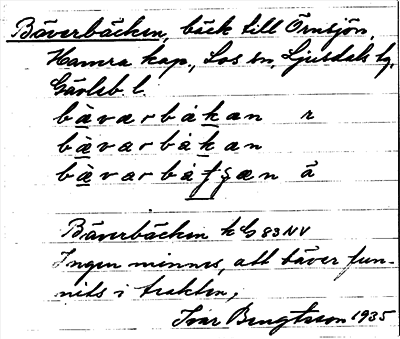 Bäverbäcken, bäck till Örnsjön,
Hamra kap., Los sn, Ljusdals tg,
Gävleb. l.
bàvarbäkan r
bàvarbäkan
bàvarbä ä
Bäverbäcken k G 83 NV
Ingen minnes, att bäver fun-
nits i trakten,
Ivar Bengtsson 1935